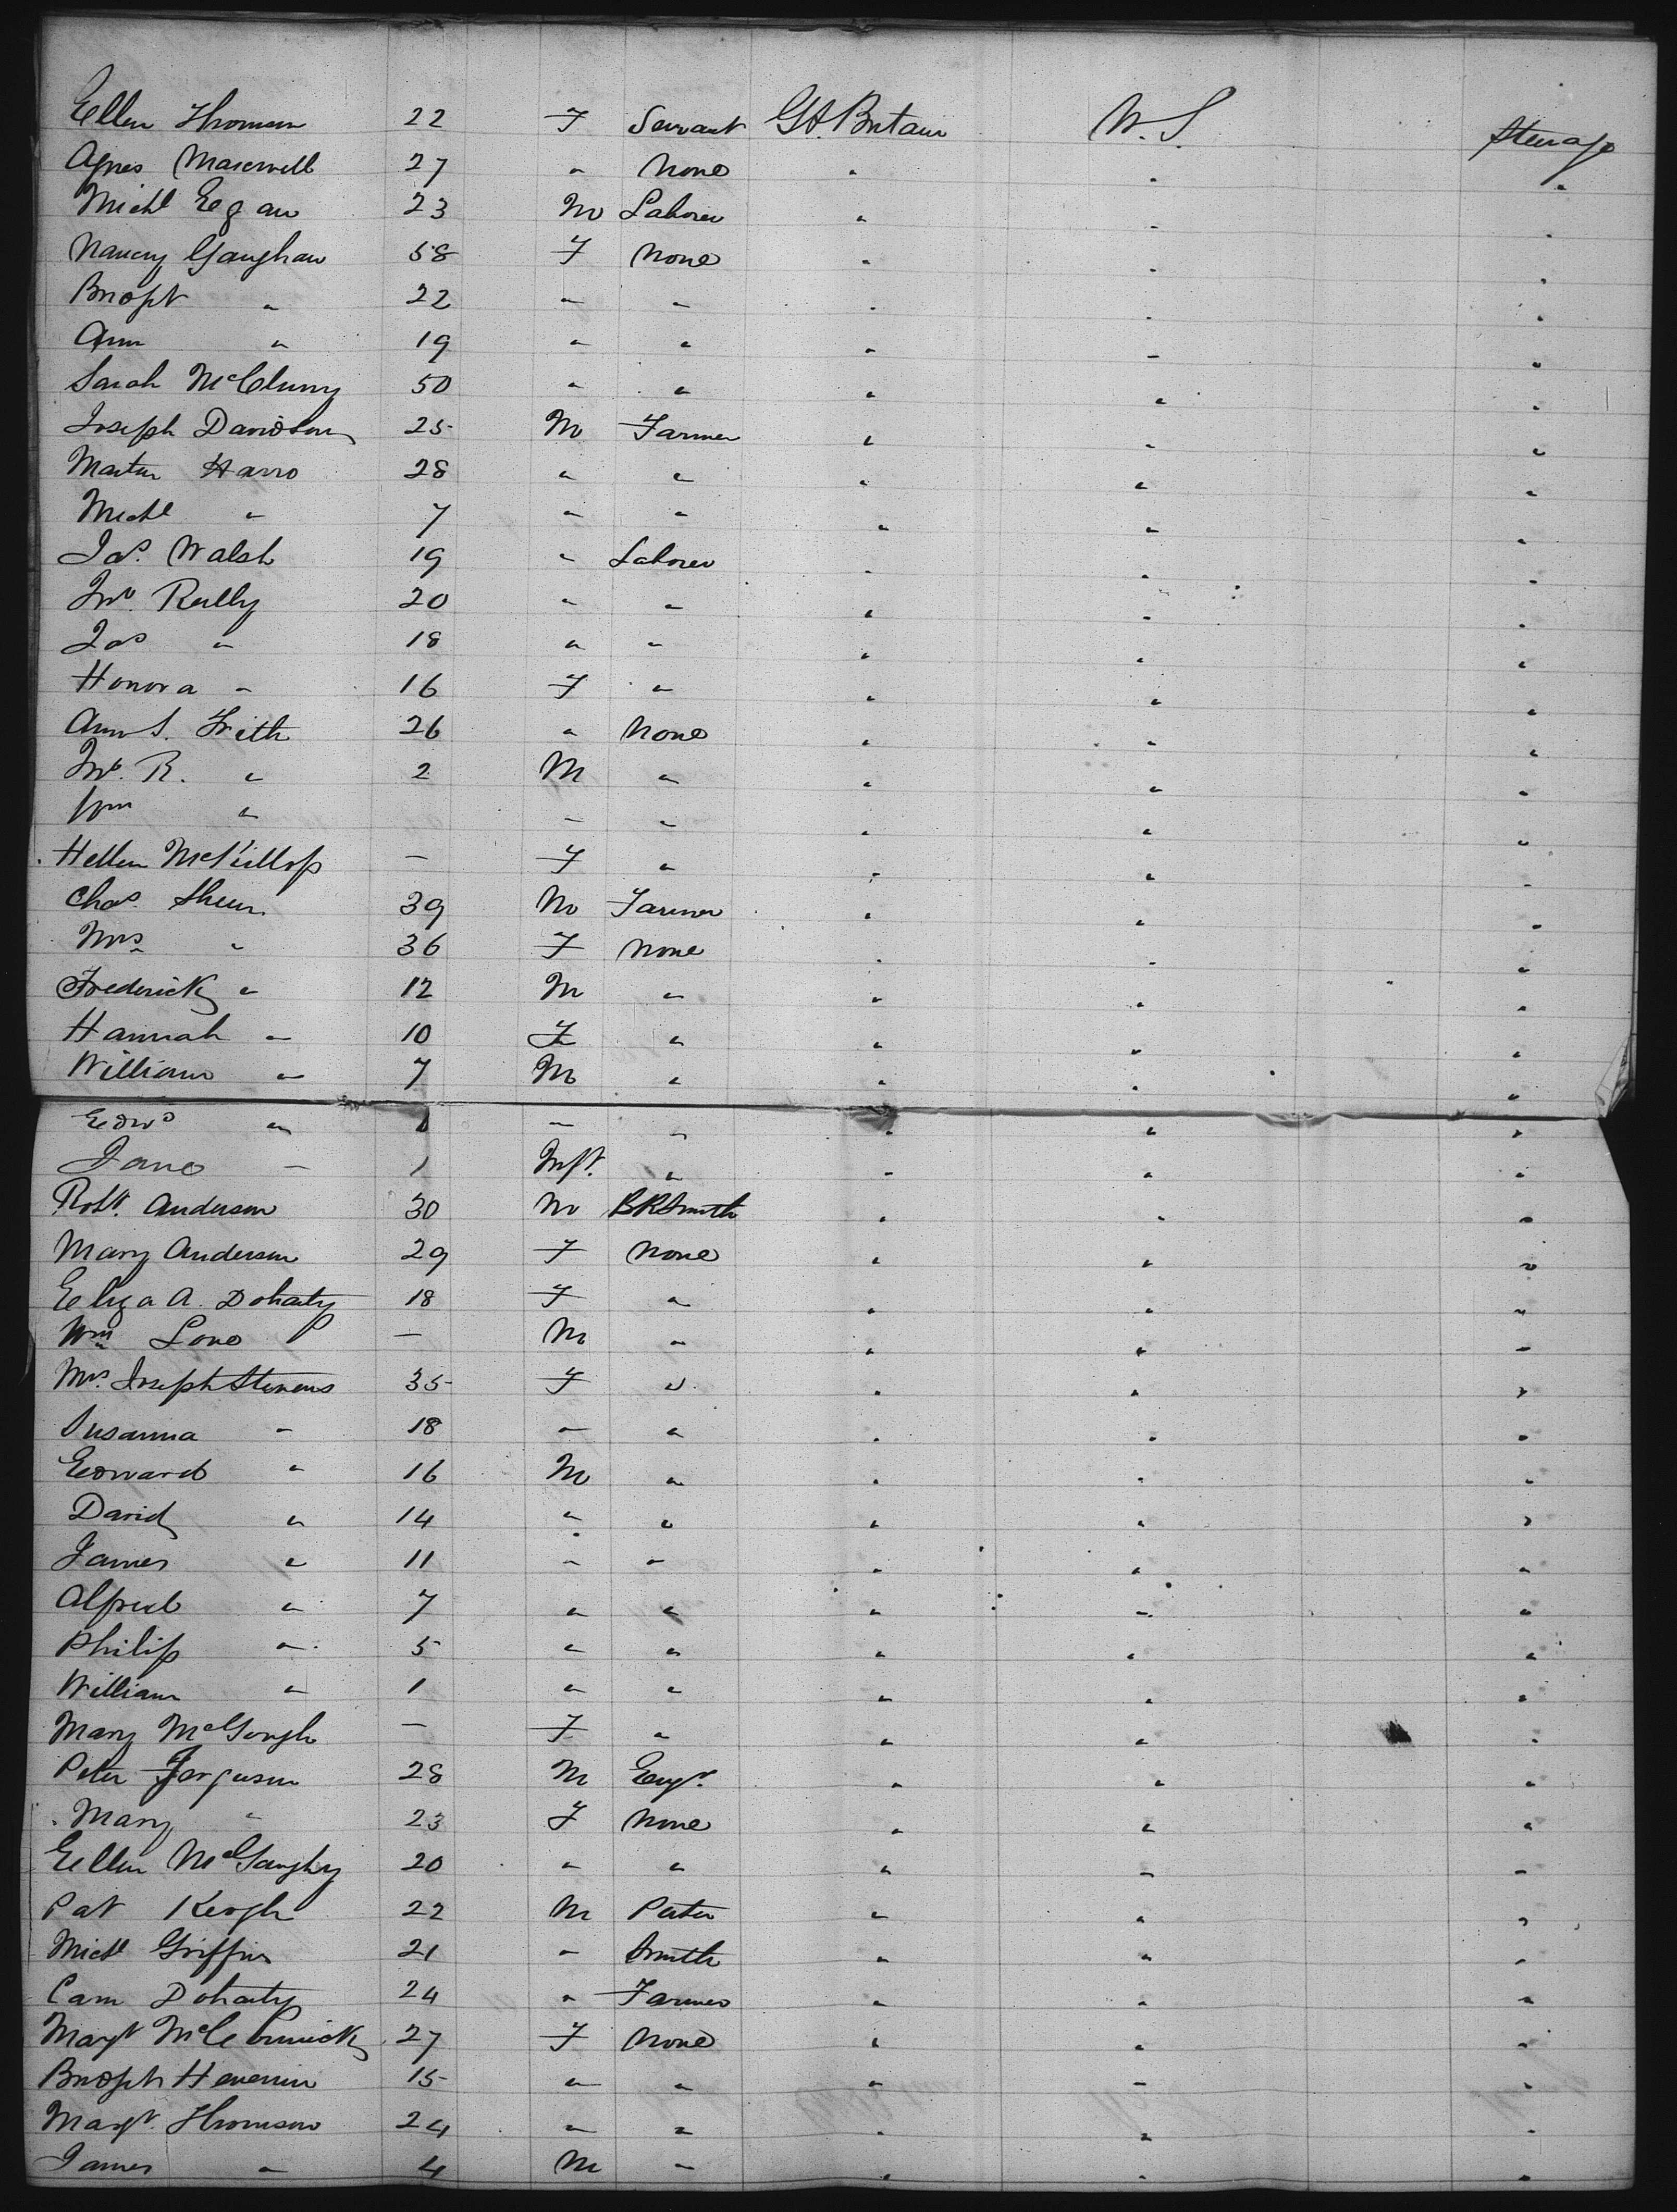 Ellen Thomson 22 F Servant Gt. Britain U.S. Steerage
Agnes Maxwell 27 " None " " "
Michl Egan 23 M Laborer " " "
Nancy Gaughan 58 F None " " "
Bridgt " 22 " " " " "
Ann " 19 " " " " "
Sarah McClurry 50 " " " " "
Joseph Davidson 25 M Farmer " " "
Martin Harro 28 " " " " "
Michl " 7 " " " " "
Jas. Walsh 19 " Laborer " " "
Jno. Reilly 20 " " " " "
Jas " 18 " " " " "
Honora " 16 F " " " "
Ann S. Frith 26 " None " " "
Jno. R. " 2 M " " " "
Wm " " " " " "
Hellen McKillop — F " " " "
Chas. Sheen 39 M Farmer " " "
Mrs " 36 F None " " "
Frederick " 12 M " " " "
Hannah " 10 F " " " "
William " 7 M " " " "
Edwd " " " " " "
Jane " 1 Inft. " " " "
Robt. Anderson 30 M BKSmith " " "
Mary Anderson 29 F None " " "
Eliza A. Doharty 18 F " " " "
Wm Love — M " " " "
Mrs. Joseph Stevens 35 F " " " "
Susanna " 18 " " " " "
Edward " 16 M " " " "
David " 14 " " " " "
James " 11 " " " " "
Alfred " 7 " " " " "
Philip " 5 " " " " "
William " 1 " " " " "
Mary McGough — F " " " "
Peter Ferguson 28 M Engr. " " "
Mary " 23 F None " " "
Ellen McGaughy 20 " " " " "
Pat Keogh 22 M " " "
Michl Griffin 21 " Smith " " "
Cam Doharty 24 " Farmer " " "
Margt McCormick 27 F None " " "
Bridgt Henerin 15 " " " " "
Margt. Thomson 24 " " " " "
James " 4 M " " " "